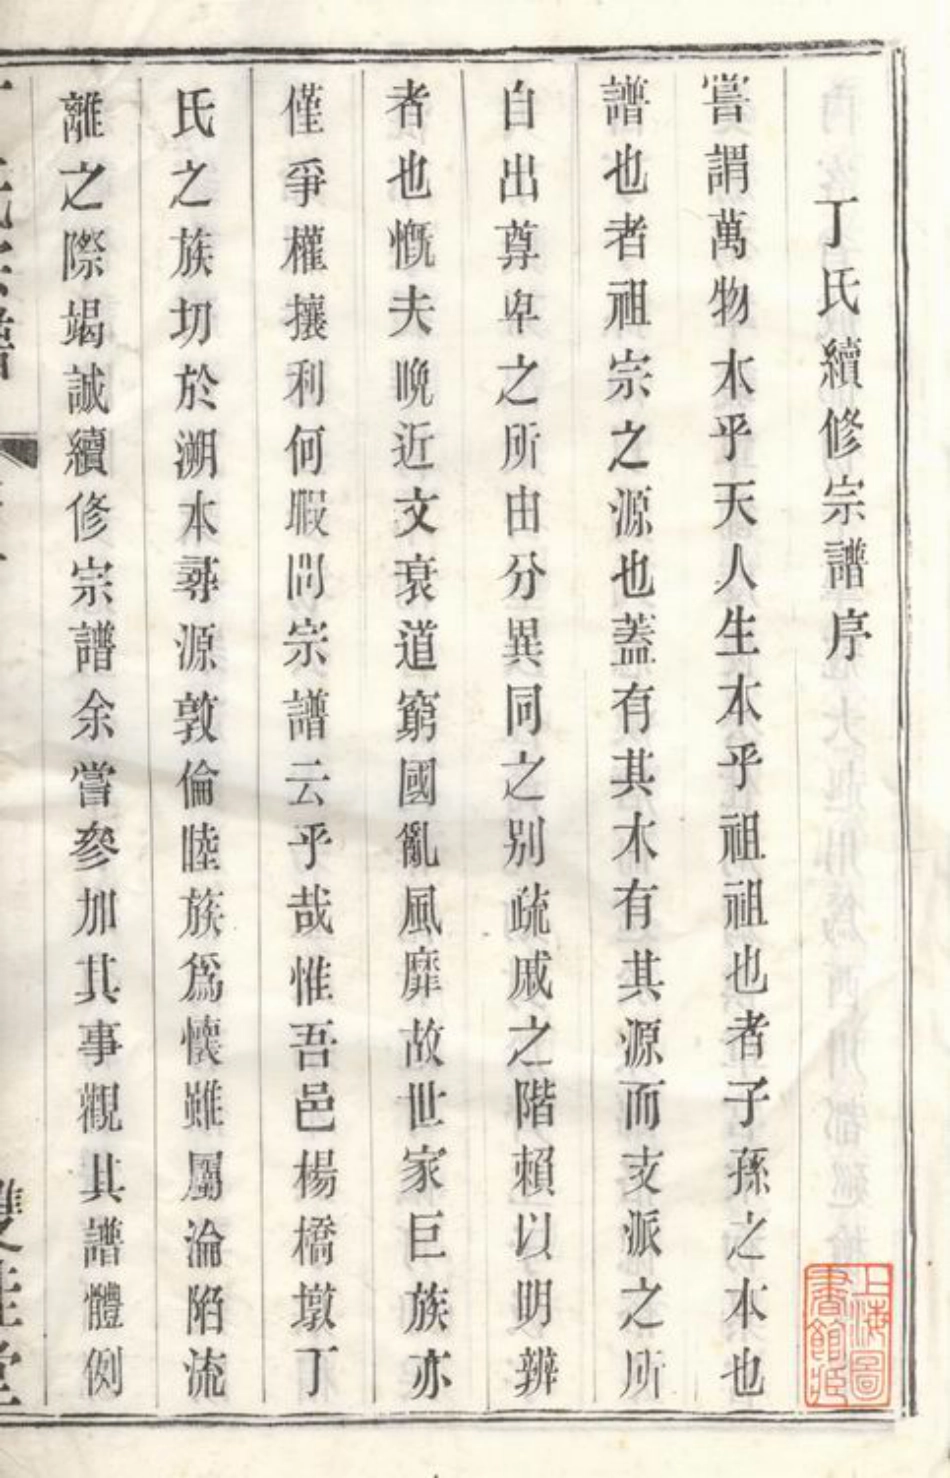 丁氏續修宗譜序
嘗謂萬物本乎天人生本乎祖祖也者子孫之本也
譜也者祖宗之源也蓋有其木有其源而支派之所
自出尊卑之所由分異同之别疏戚之階賴以明辨
者也慨夫晩近文衰道窮國亂風靡故世家巨族亦
僅爭權攘利何暇問宗譜云乎哉惟吾邑楊橋墩丁
氏之族切於溯本尋源敦倫睦族爲懐雖屬淪陷流
離之際竭誠續修宗譜余嘗參加其事觀其譜體例
上海圖書館